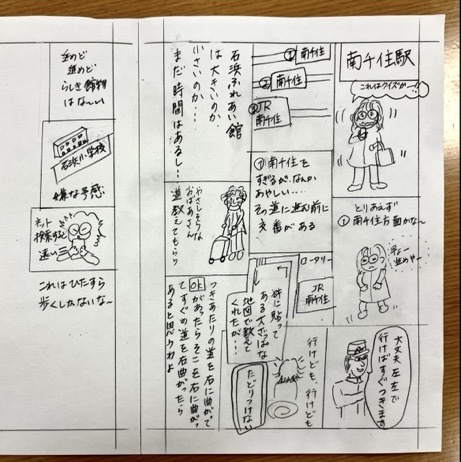 南千住駅
これはクイズかー!!
とりあえず
①南千住方面かな〜
大丈夫 左左で
行けばすぐつきます
①南千住
②南千住
JR
南千住
①南千住を
すぎるが、なんか
あやしい…。
その道に進む前に
交番がある
ロータリー
JR
南千住
駅に貼って
ある大ざっぱな
地図で教えて
くれたが…
行けども、行けども
たどりつけない
石浜ふれあい館
は大きいのか、
小さいのか…
まだ時間はあるし…
やさしそうな
おばあさん
道教えてもらう
つきあたりの道を右に曲がって
OKがあったらそこを右に曲がっ
てすぐの道を右曲がったら
あると思うわよ
進めど
進めど
らしき館物
はな〜い
石浜小学校
嫌な予感
ネット
検索すると
遠い…
これはひたすら
歩くしかないな〜